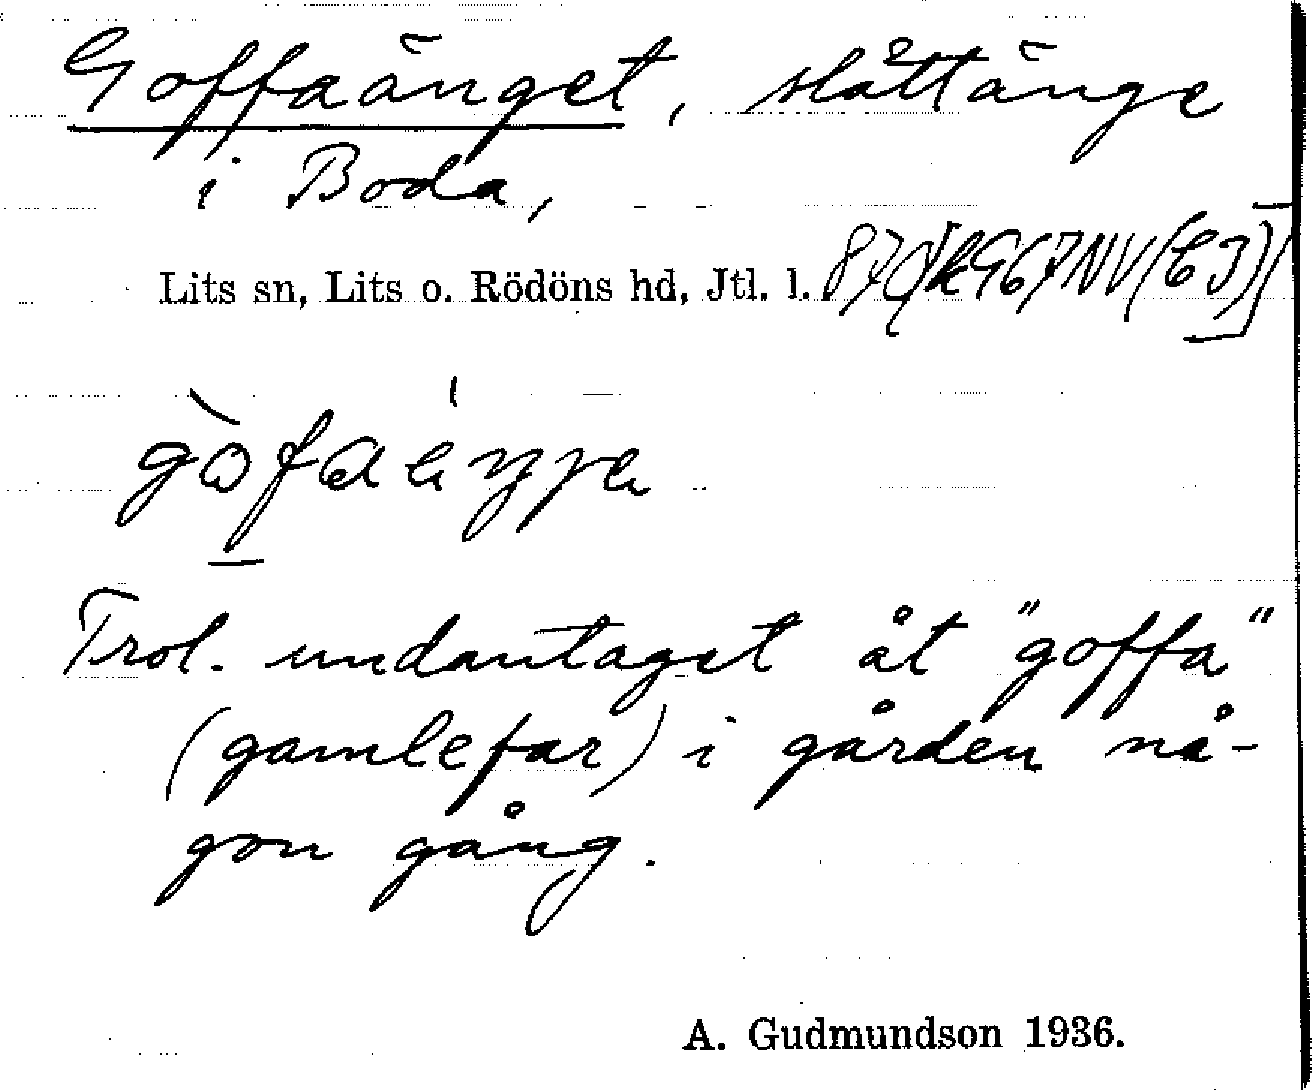 Goffaänget, slåttänge
i Boda,
Lits sn, Lits o. Rödöns hd, Jtl. l.
Trol. undantaget åt "goffa"
(gamlefar) i gården nå-
gon gång.
A. Gudmundson 1936.